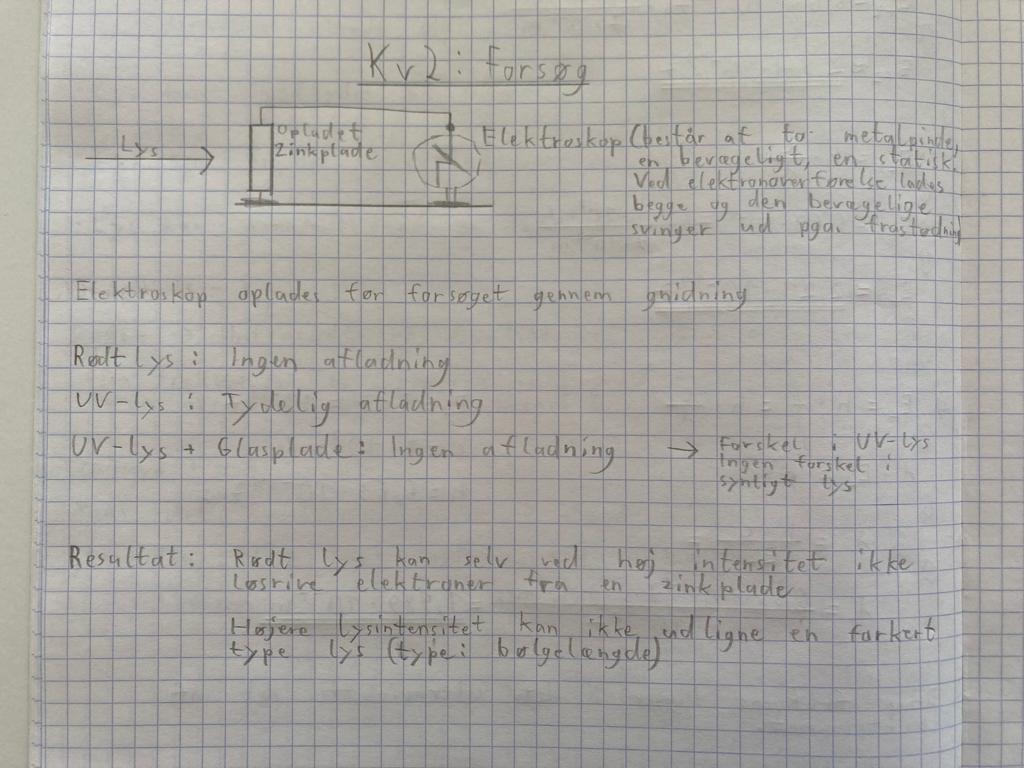 Kv2: Forsøg
Lys
Opladet
Zinkplade
Elektroskop (består af to metalpinde,
en bevægeligt, en statisk.
Ved elektronoverførelse lades
begge og den bevægelige
svinger ud pga. frastødning
Elektroskop oplades før forsøget gennem gnidning
Rødt Lys: Ingen afladning
UV-Lys: Tydelig afladning
UV-Lys + Glasplade: Ingen afladning → Forskel i UV-Lys
Ingen forskel i
synligt lys
Resultat: Rødt lys kan selv ved høj intensitet ikke
løsrive elektroner fra en zinkplade
Højere lysintensitet kan ikke udligne en forkert
type lys (type: bølgelængde)